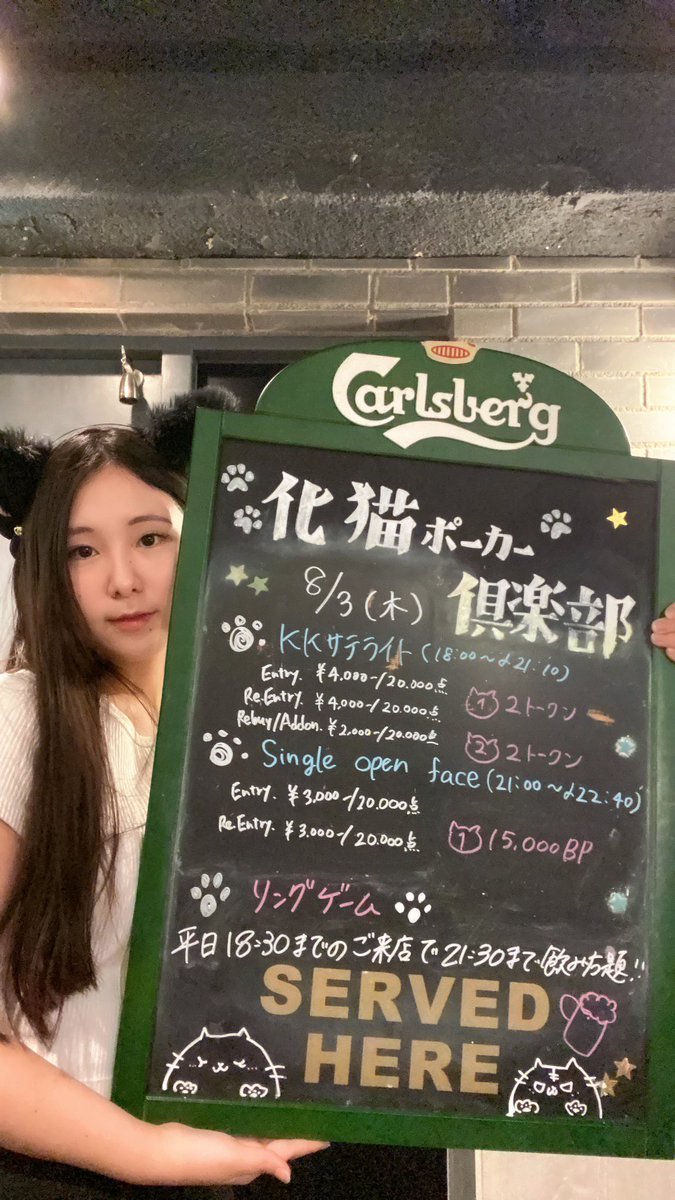 Carlsberg
化猫ポーカー
倶楽部
8/3(木)
KKサテライト(18:00〜〆21:10)
Entry. ¥4,000-/20.000点
Re.Entry. ¥4,000-/20.000点
Rebuy/Addon. ¥2,000-/20.000点
1 2トークン
2 2トークン
Single open face(21:00〜〆22:40)
Entry. ¥3,000-/20.000点
Re.Entry. ¥3,000-/20.000点
1 15,000BP
リングゲーム
平日18:30までのご来店で21:30まで飲み放題!!
SERVED
HERE